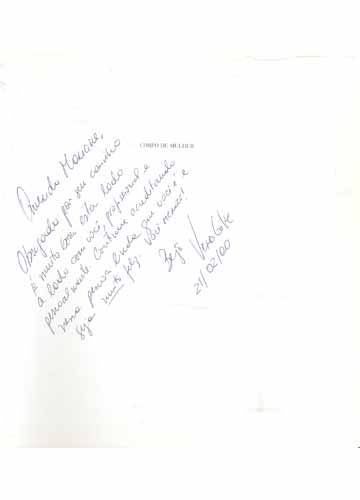 CORPO DE MULHER
Querida Mariane,
Obrigada por seu carinho
é muito bom esta lado
a lado com você, profissional e
pessoalmente. Continue acreditando
pessoa linda que você é e
seja muito feliz. Você merece!
Bejo
21/02/00